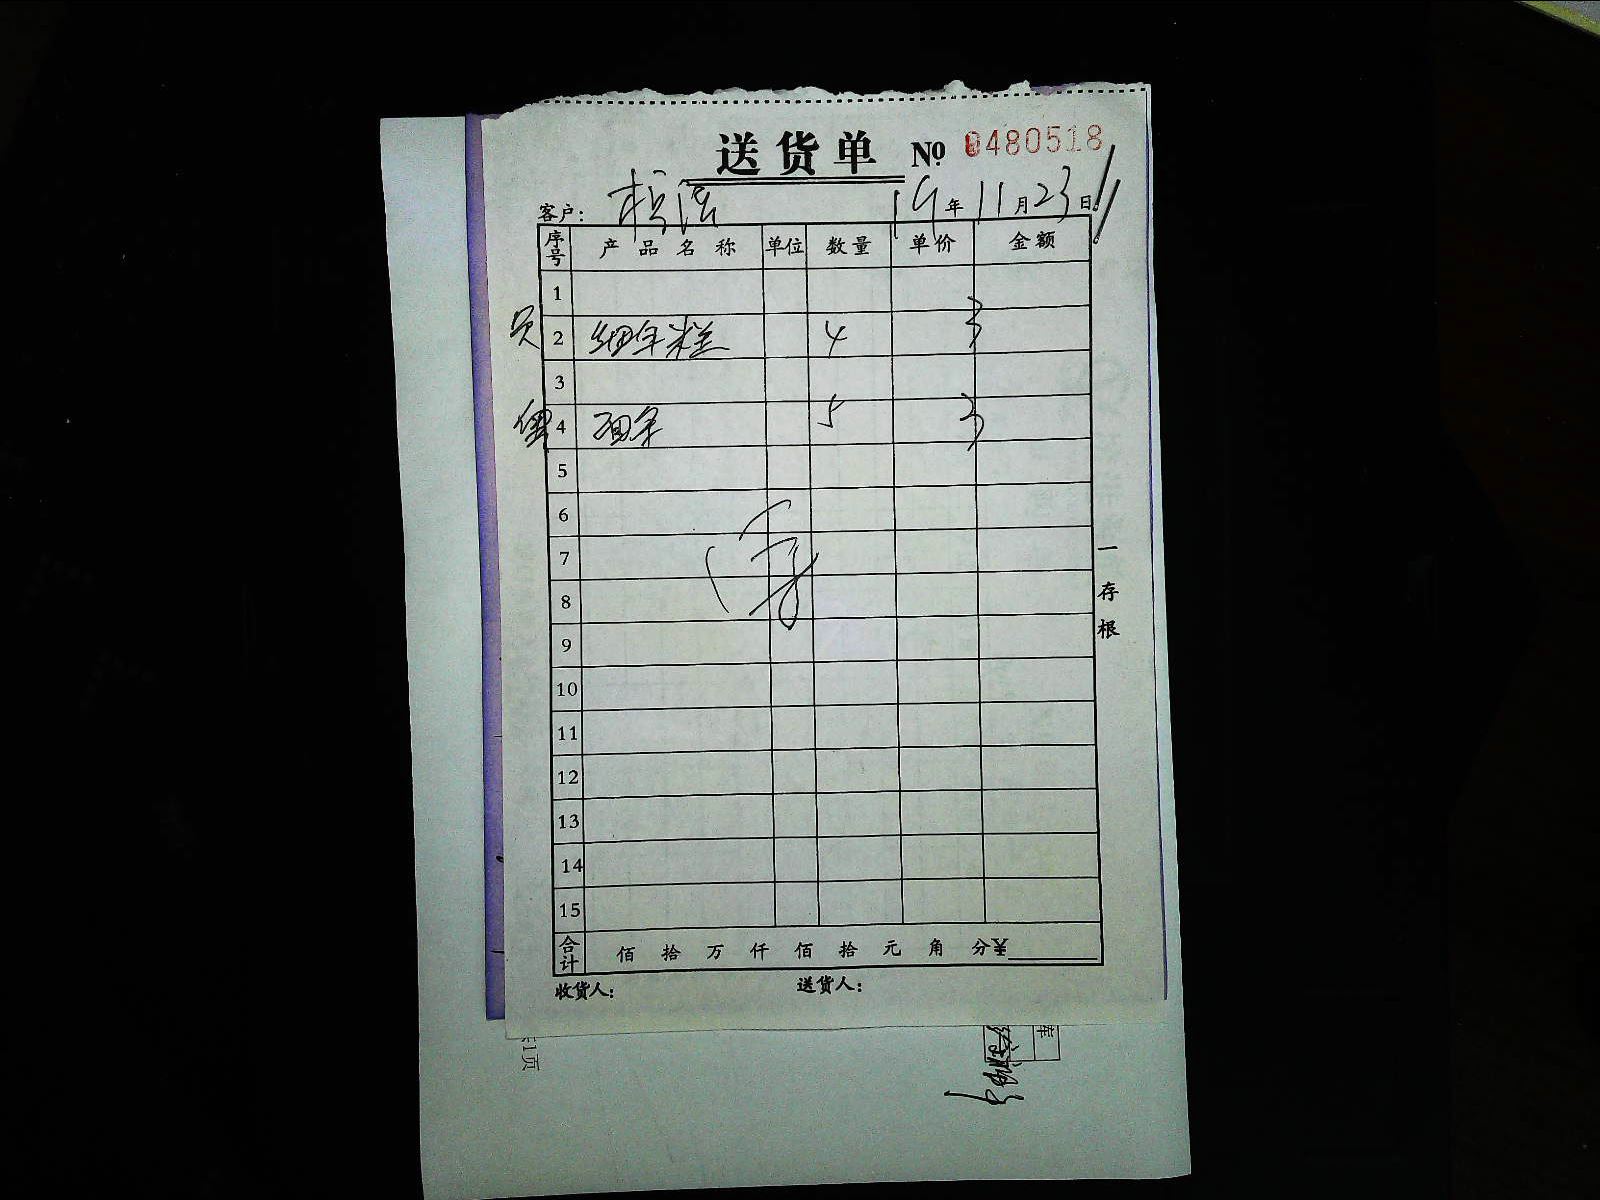 送货单 № 0480518
客户: 19年11月23日
序号 产品名称 单位 数量 单价 金额
1
2 细年糕 4 3
3
4 面条 5 3
5
6
7
8
9
10
11
12
13
14
15
一存根
合计 佰 拾 万 仟 佰 拾 元 角 分¥
收货人: 送货人:
1页
库